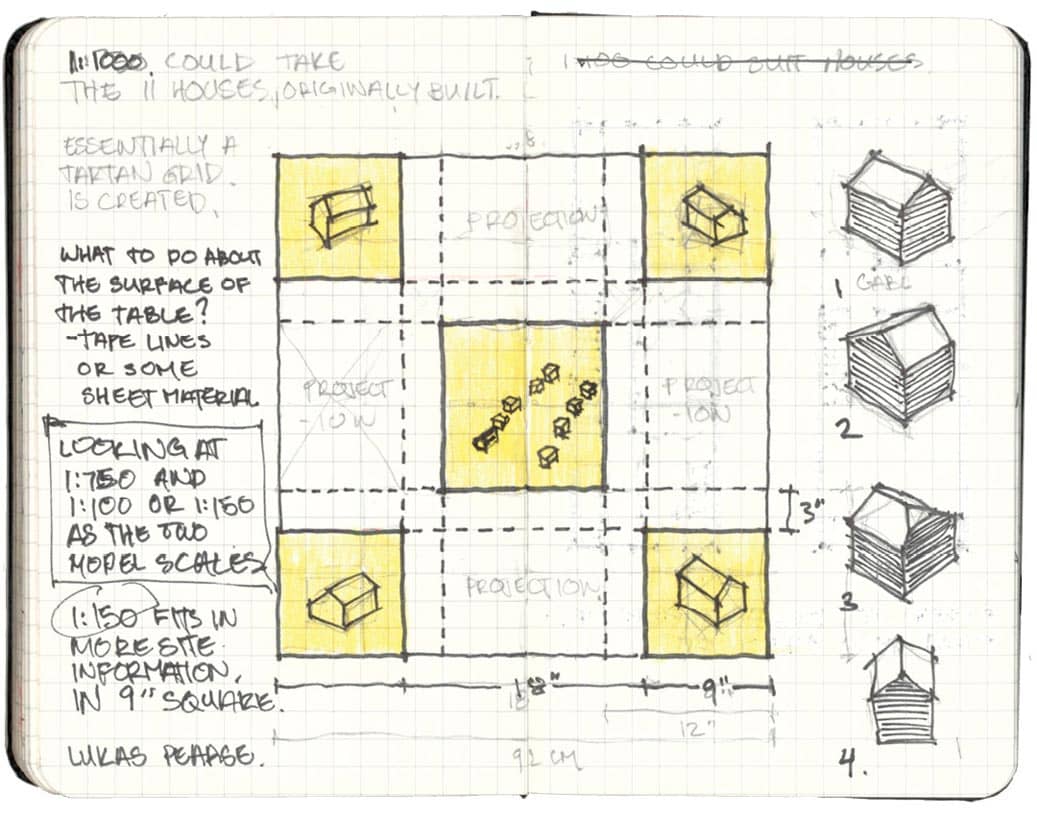 1:1000. COULD TAKE
THE 11 HOUSES, ORIGINALLY BUILT.
COULD SUIT HOUSES
ESSENTIALLY A
TARTAN GRID.
IS CREATED.
WHAT TO DO ABOUT
THE SURFACE OF
THE TABLE?
-TAPE LINES
OR SOME
SHEET MATERIAL
LOOKING AT
1:750 AND
1:100 OR 1:150
AS THE TWO
MODEL SCALES
1:150 FITS IN
MORE SITE
INFORMATION.
IN 9" SQUARE.
LUKAS PEARSE.
PROJECTION
PROJECT
-ION
PROJECT
-ION
PROJECTION
3"
18"
9"
12"
92 CM
1 GABL
2
3
4.